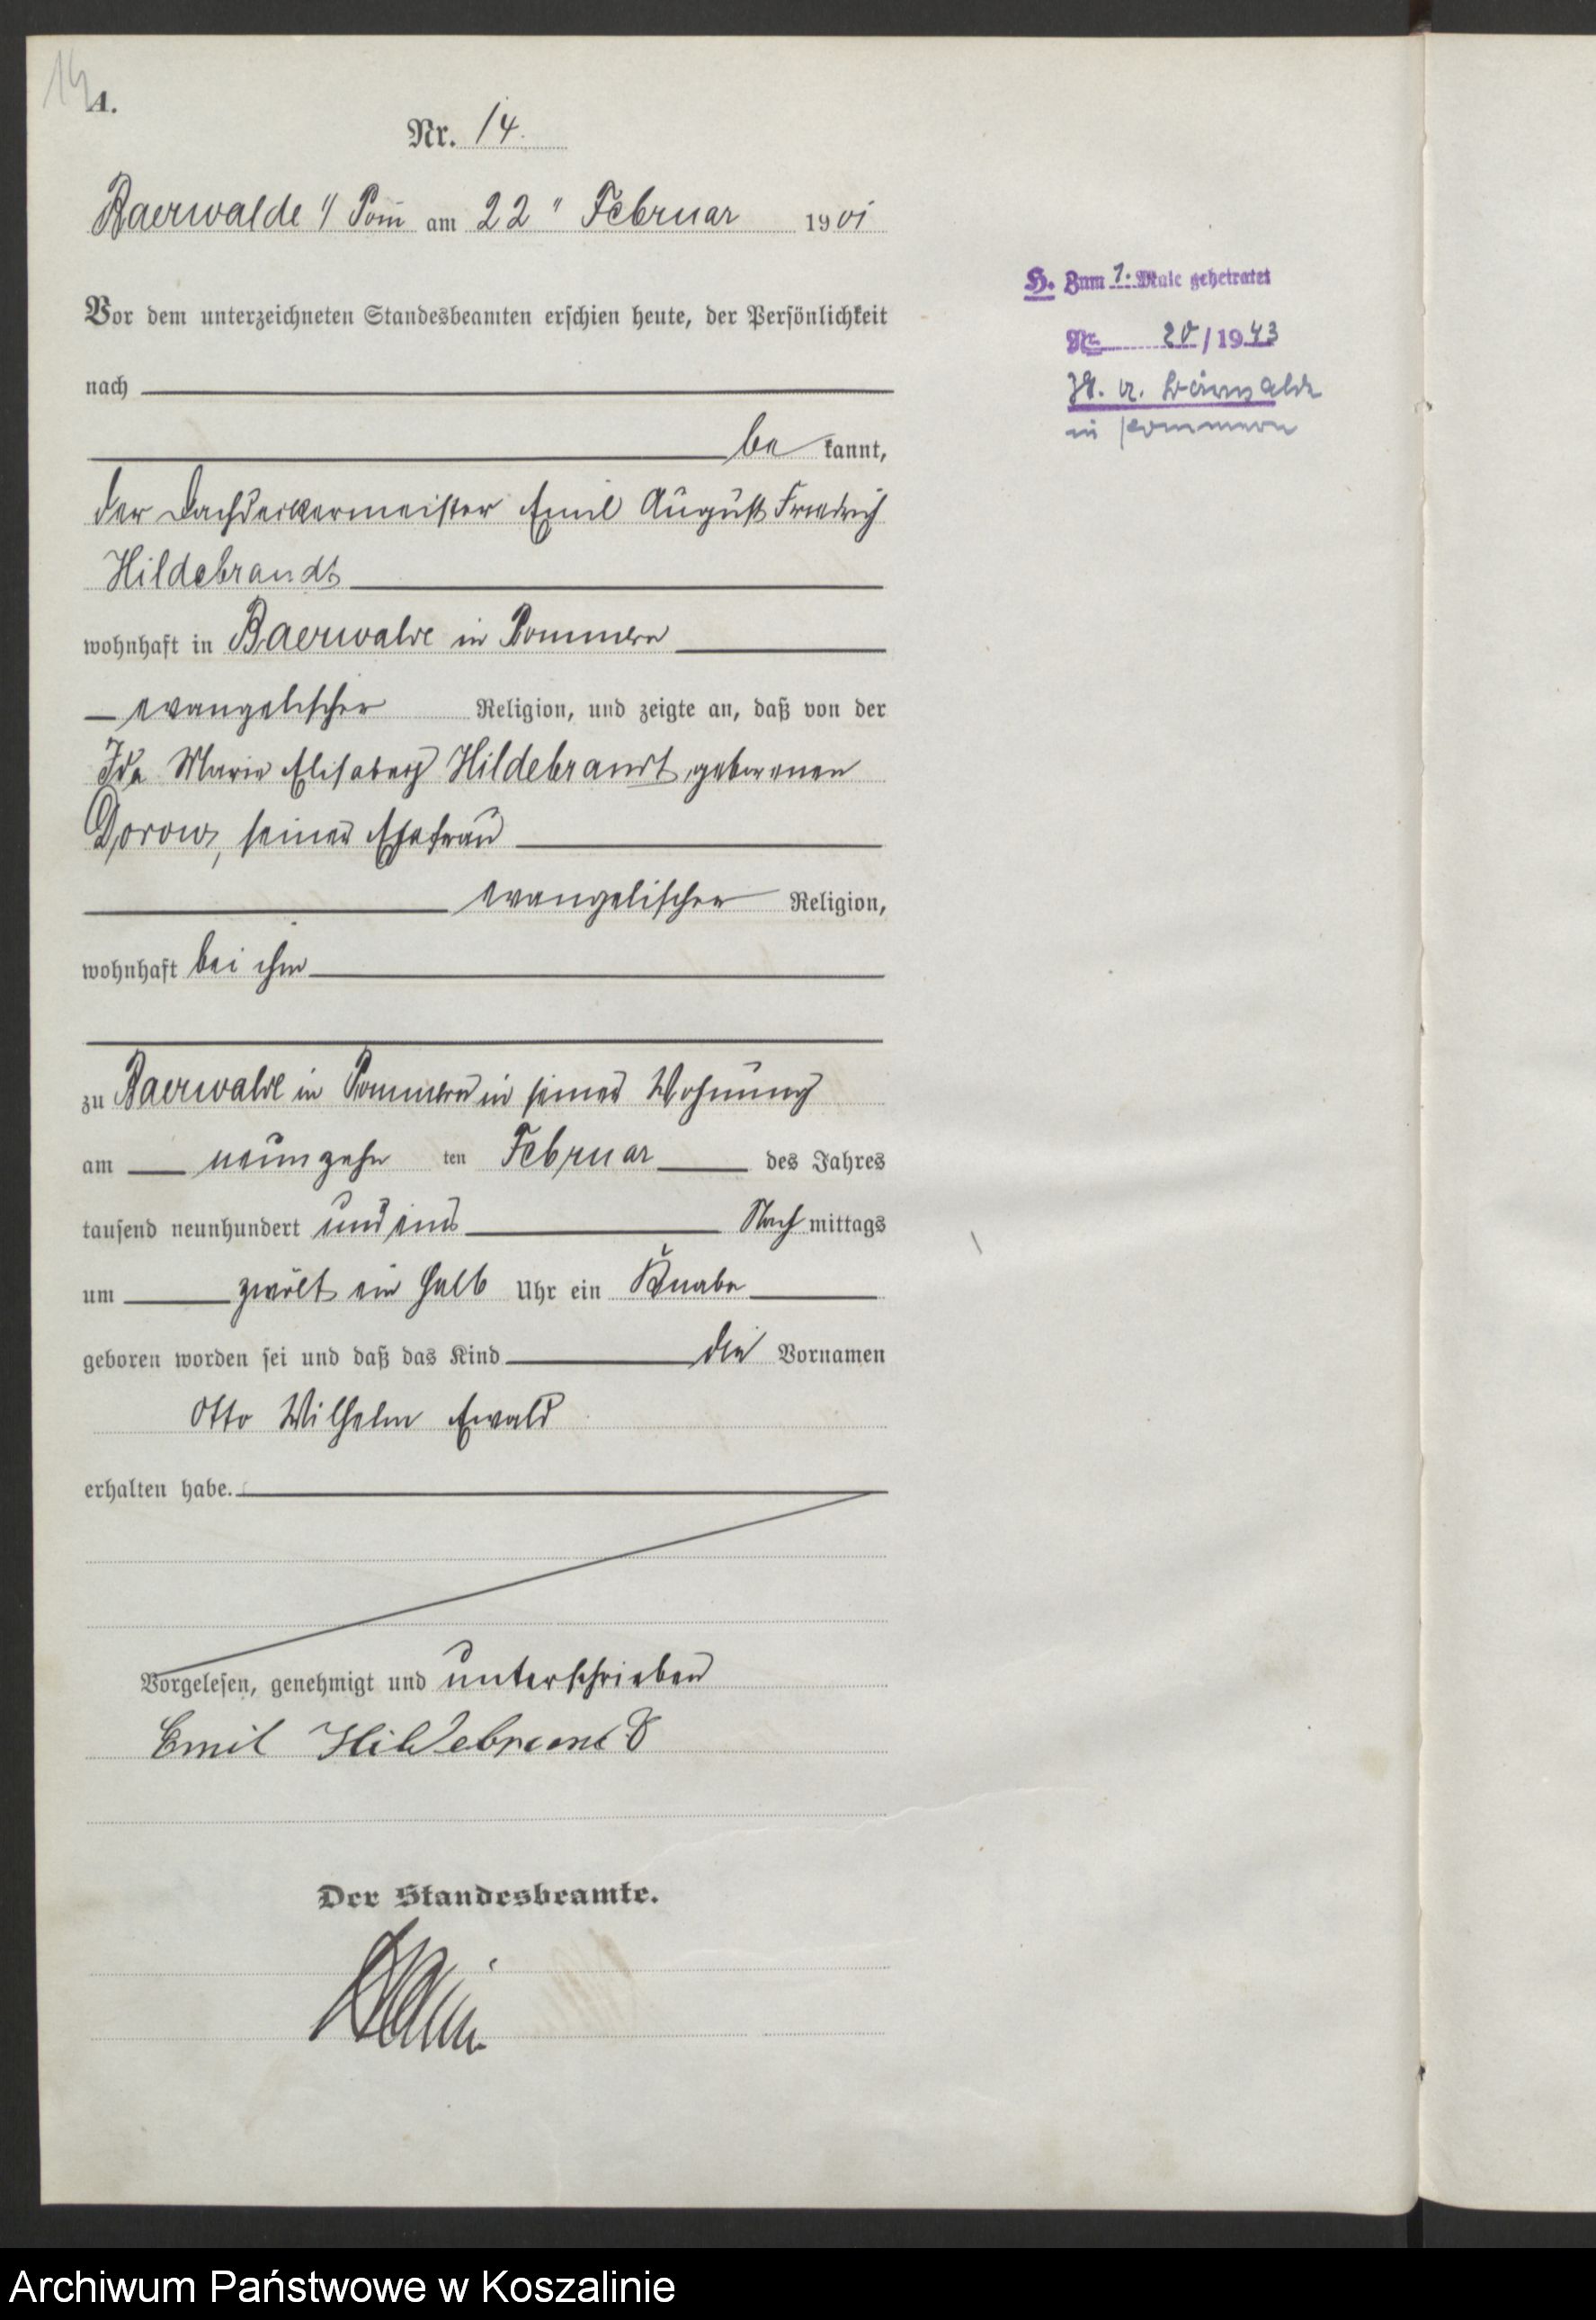 14
A.
Nr. 14.
Baerwalde i/ Pom̄ am 22" Februar 1901
Vor dem unterzeichneten Standesbeamten erschien heute, der Persönlichkeit
nach
be kannt,
der Dachdeckermeister Emil August Friedrich
Hildebrandt
wohnhaft in Baerwalde in Pommern
evangelischer Religion, und zeigte an, daß von der
Ida Marie Elisabeth Hildebrandt, geborenen
Dorow, seiner Ehefrau
evangelischer Religion,
wohnhaft bei ihm
zu Baerwalde in Pommern in seiner Wohnung
am neunzehn ten Februar des Jahres
tausend neunhundert und eins Nach mittags
um zwölf ein halb Uhr ein Knabe
geboren worden sei und daß das Kind die Vornamen
Otto Wilhelm Ewald
erhalten habe.
Vorgelesen, genehmigt und unterschrieben
Emil Hildebrandt
Der Standesbeamte.
H. Zum 1. Male geheiratet
Nr. 20/1943
St. A. Bärwalde
in Pommern
Archiwum Państwowe w Koszalinie